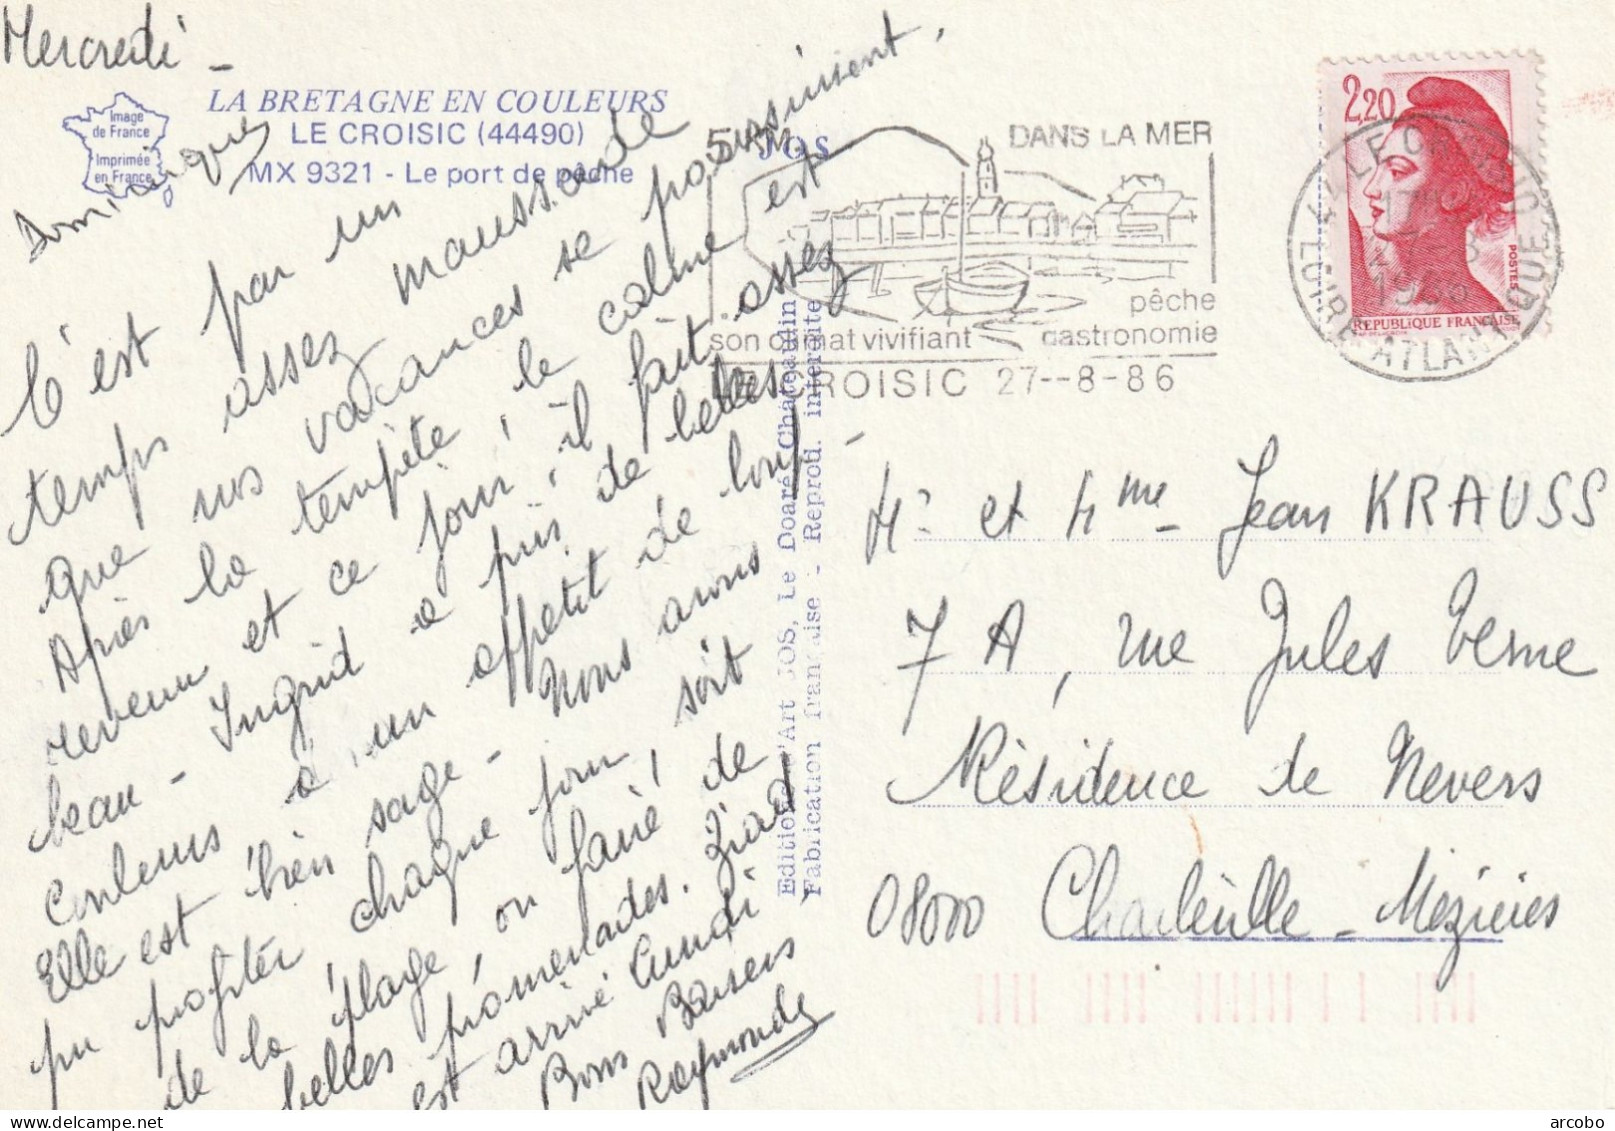 Mercredi -
LA BRETAGNE EN COULEURS
LE CROISIC (44490)
MX 9321 - Le port de pêche
Image
de France
Imprimée
en France
JOS
Dominique
C'est par un
temps assez maussade
que nos vacances se poursuivent.
Après la tempête, le calme est
revenu et ce jour, il fait assez
beau - Ingrid a pris de belles
couleurs a un appétit de loup -
Elle est bien sage - Nous avons
pu profiter chaque jour, soit
de la plage, ou faire de
belles promenades. Ziad
est arrivé lundi
Bons Baisers
Raymonde
Editions d'Art JOS, Le Doaré Châteaulin
Fabrication française - Reprod. interdite
DANS LA MER
pêche
son climat vivifiant gastronomie
LE CROISIC 27--8-86
2,20
POSTES
REPUBLIQUE FRANÇAISE
44 LE CROISIC
LOIRE-ATLANTIQUE
Mr et Mme Jean KRAUSS
7 A, rue Jules Verne
Résidence de Nevers
08000 Charleville-Mézières
arcobo